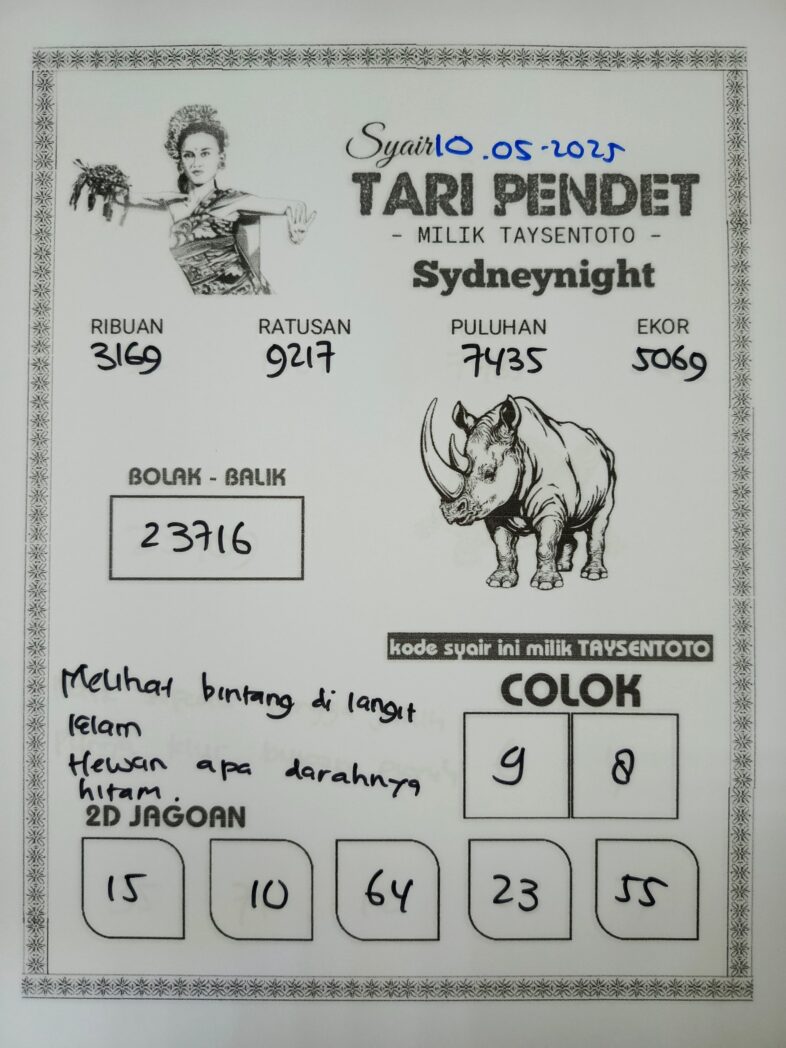 Syair 10.05-2025
TARI PENDET
- MILIK TAYSENTOTO -
Sydneynight
RIBUAN RATUSAN PULUHAN EKOR
3169 9217 7435 5069
BOLAK - BALIK
23716
kode syair ini milik TAYSENTOTO
Melihat bintang di langit
kelam
Hewan apa darahnya
hitam.
COLOK
9 8
2D JAGOAN
15 10 64 23 55